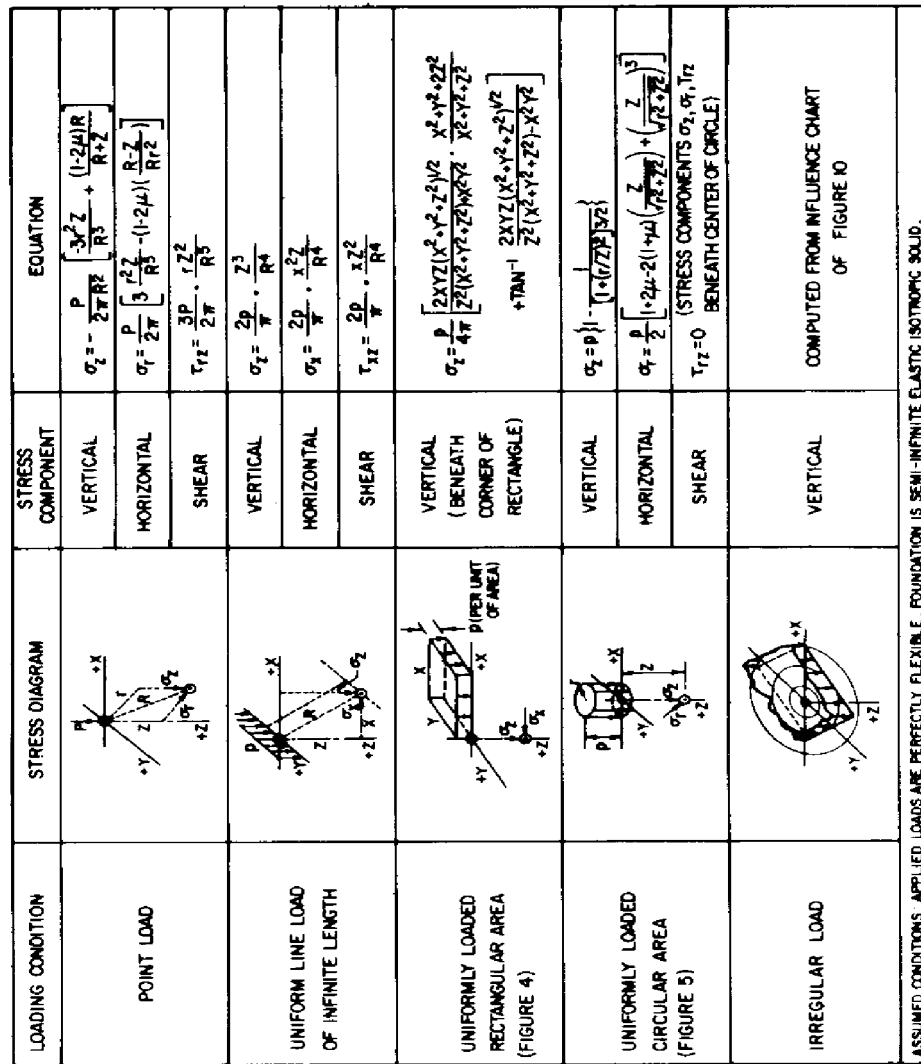 LOADING CONDITION
STRESS DIAGRAM
STRESS COMPONENT
EQUATION
POINT LOAD
P
+X
r
R
Z
σz
σr
+Y
+Z
VERTICAL
σz = - P/2πR² [-3r²Z/R³ + (1-2μ)R/R+Z]
HORIZONTAL
σr = P/2π [3 r²Z/R⁵ - (1-2μ)(R-Z/Rr²)]
SHEAR
Trz = 3P/2π · rZ²/R⁵
UNIFORM LINE LOAD
OF INFINITE LENGTH
P
+Y
+X
Z
R
σz
σx
X
+Z
VERTICAL
σz = 2p/π · Z³/R⁴
HORIZONTAL
σx = 2p/π · x²Z/R⁴
SHEAR
Txz = 2p/π · xZ²/R⁴
UNIFORMLY LOADED
RECTANGULAR AREA
(FIGURE 4)
X
Y
p (PER UNIT
OF AREA)
+X
+Y
σz
σx
+Z
VERTICAL
(BENEATH
CORNER OF
RECTANGLE)
σz = p/4π [2XYZ(X²+Y²+Z²)^1/2 / Z²(X²+Y²+Z²)+X²Y² · X²+Y²+2Z² / X²+Y²+Z²
+TAN⁻¹ 2XYZ(X²+Y²+Z²)^1/2 / Z²(X²+Y²+Z²)-X²Y²]
UNIFORMLY LOADED
CIRCULAR AREA
(FIGURE 5)
P
+X
+Y
Z
σz
σr
+Z
VERTICAL
σz = p{1 - 1/[1+(r/Z)²]^3/2}
HORIZONTAL
σr = p/2 [1+2μ-2(1+μ)(Z/√r²+Z²) + (Z/√r²+Z²)³]
SHEAR
Trz = 0 (STRESS COMPONENTS σz, σr, Trz
BENEATH CENTER OF CIRCLE)
IRREGULAR LOAD
+X
+Y
+Z
VERTICAL
COMPUTED FROM INFLUENCE CHART
OF FIGURE 10
ASSUMED CONDITIONS: APPLIED LOADS ARE PERFECTLY FLEXIBLE, FOUNDATION IS SEMI-INFINITE ELASTIC ISOTROPIC SOLID.